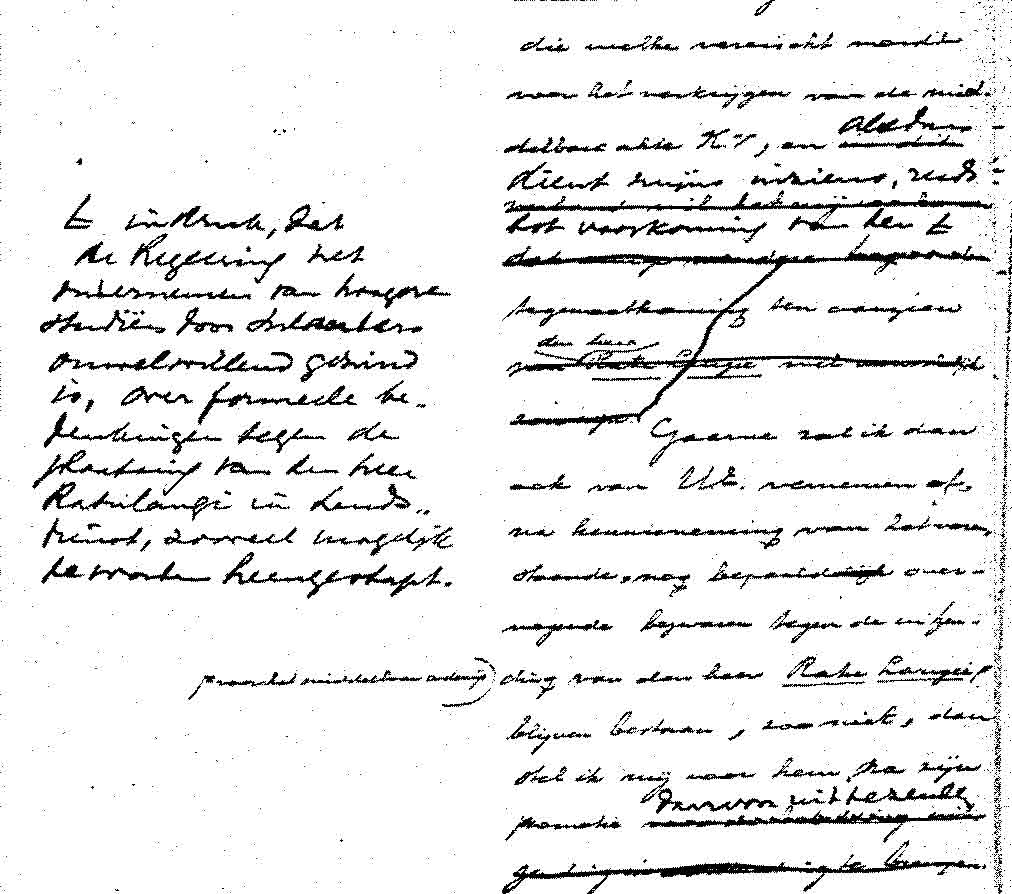 die welke vereischt wordt
voor het verkrijgen van de mid-
delbare akte K V, en
Aldus
dient mijns inziens, reeds
tot voorkoming van den t
tegemoetkoming ten aanzien
den heer
van Ratu Langie niet
Gaarne zal ik dan
ook van U.E. vernemen of,
na kennisneming van het voren-
staande, nog bepaaldelijk over-
wegende bezwaren tegen de uitzen-
ding van den heer Ratu Langie
blijven bestaan, zoo niet, dan
stel ik mij voor hem na zijn
promotie
daarvoor uit te zenden
t indruk, dat
de Regeering het
ondernemen van hoogere
studiën door Indonesiers
onwelwillend gezind
is, over formeele be-
denkingen tegen de
plaatsing van den heer
Ratulangi in Lands-
dienst, zooveel mogelijk
te worden heengestapt.
voor het middelbaar onderwijs